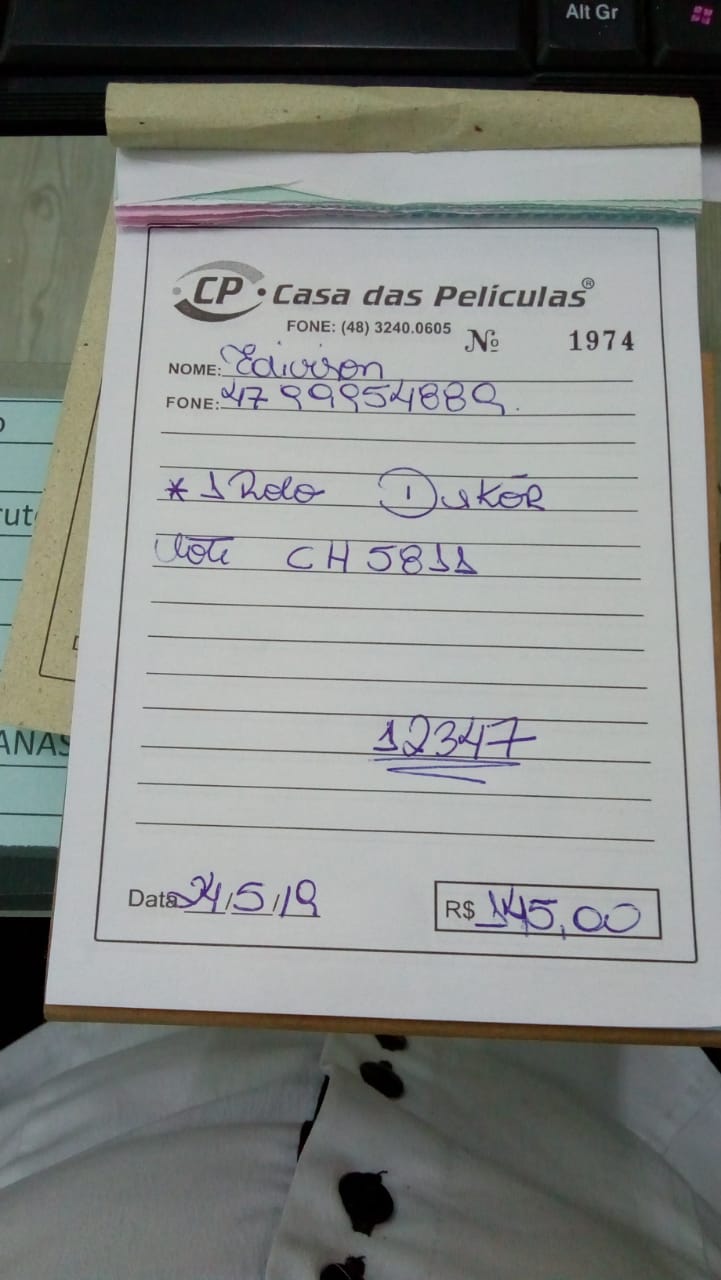 Alt Gr
CP Casa das Películas®
FONE: (48) 3240.0605
Nº 1974
NOME: Edivison
FONE: 47 999954889
* 1 Rolo
Lote CH5811
12347
Data 24/5/19
R$ 145,00
ANAS